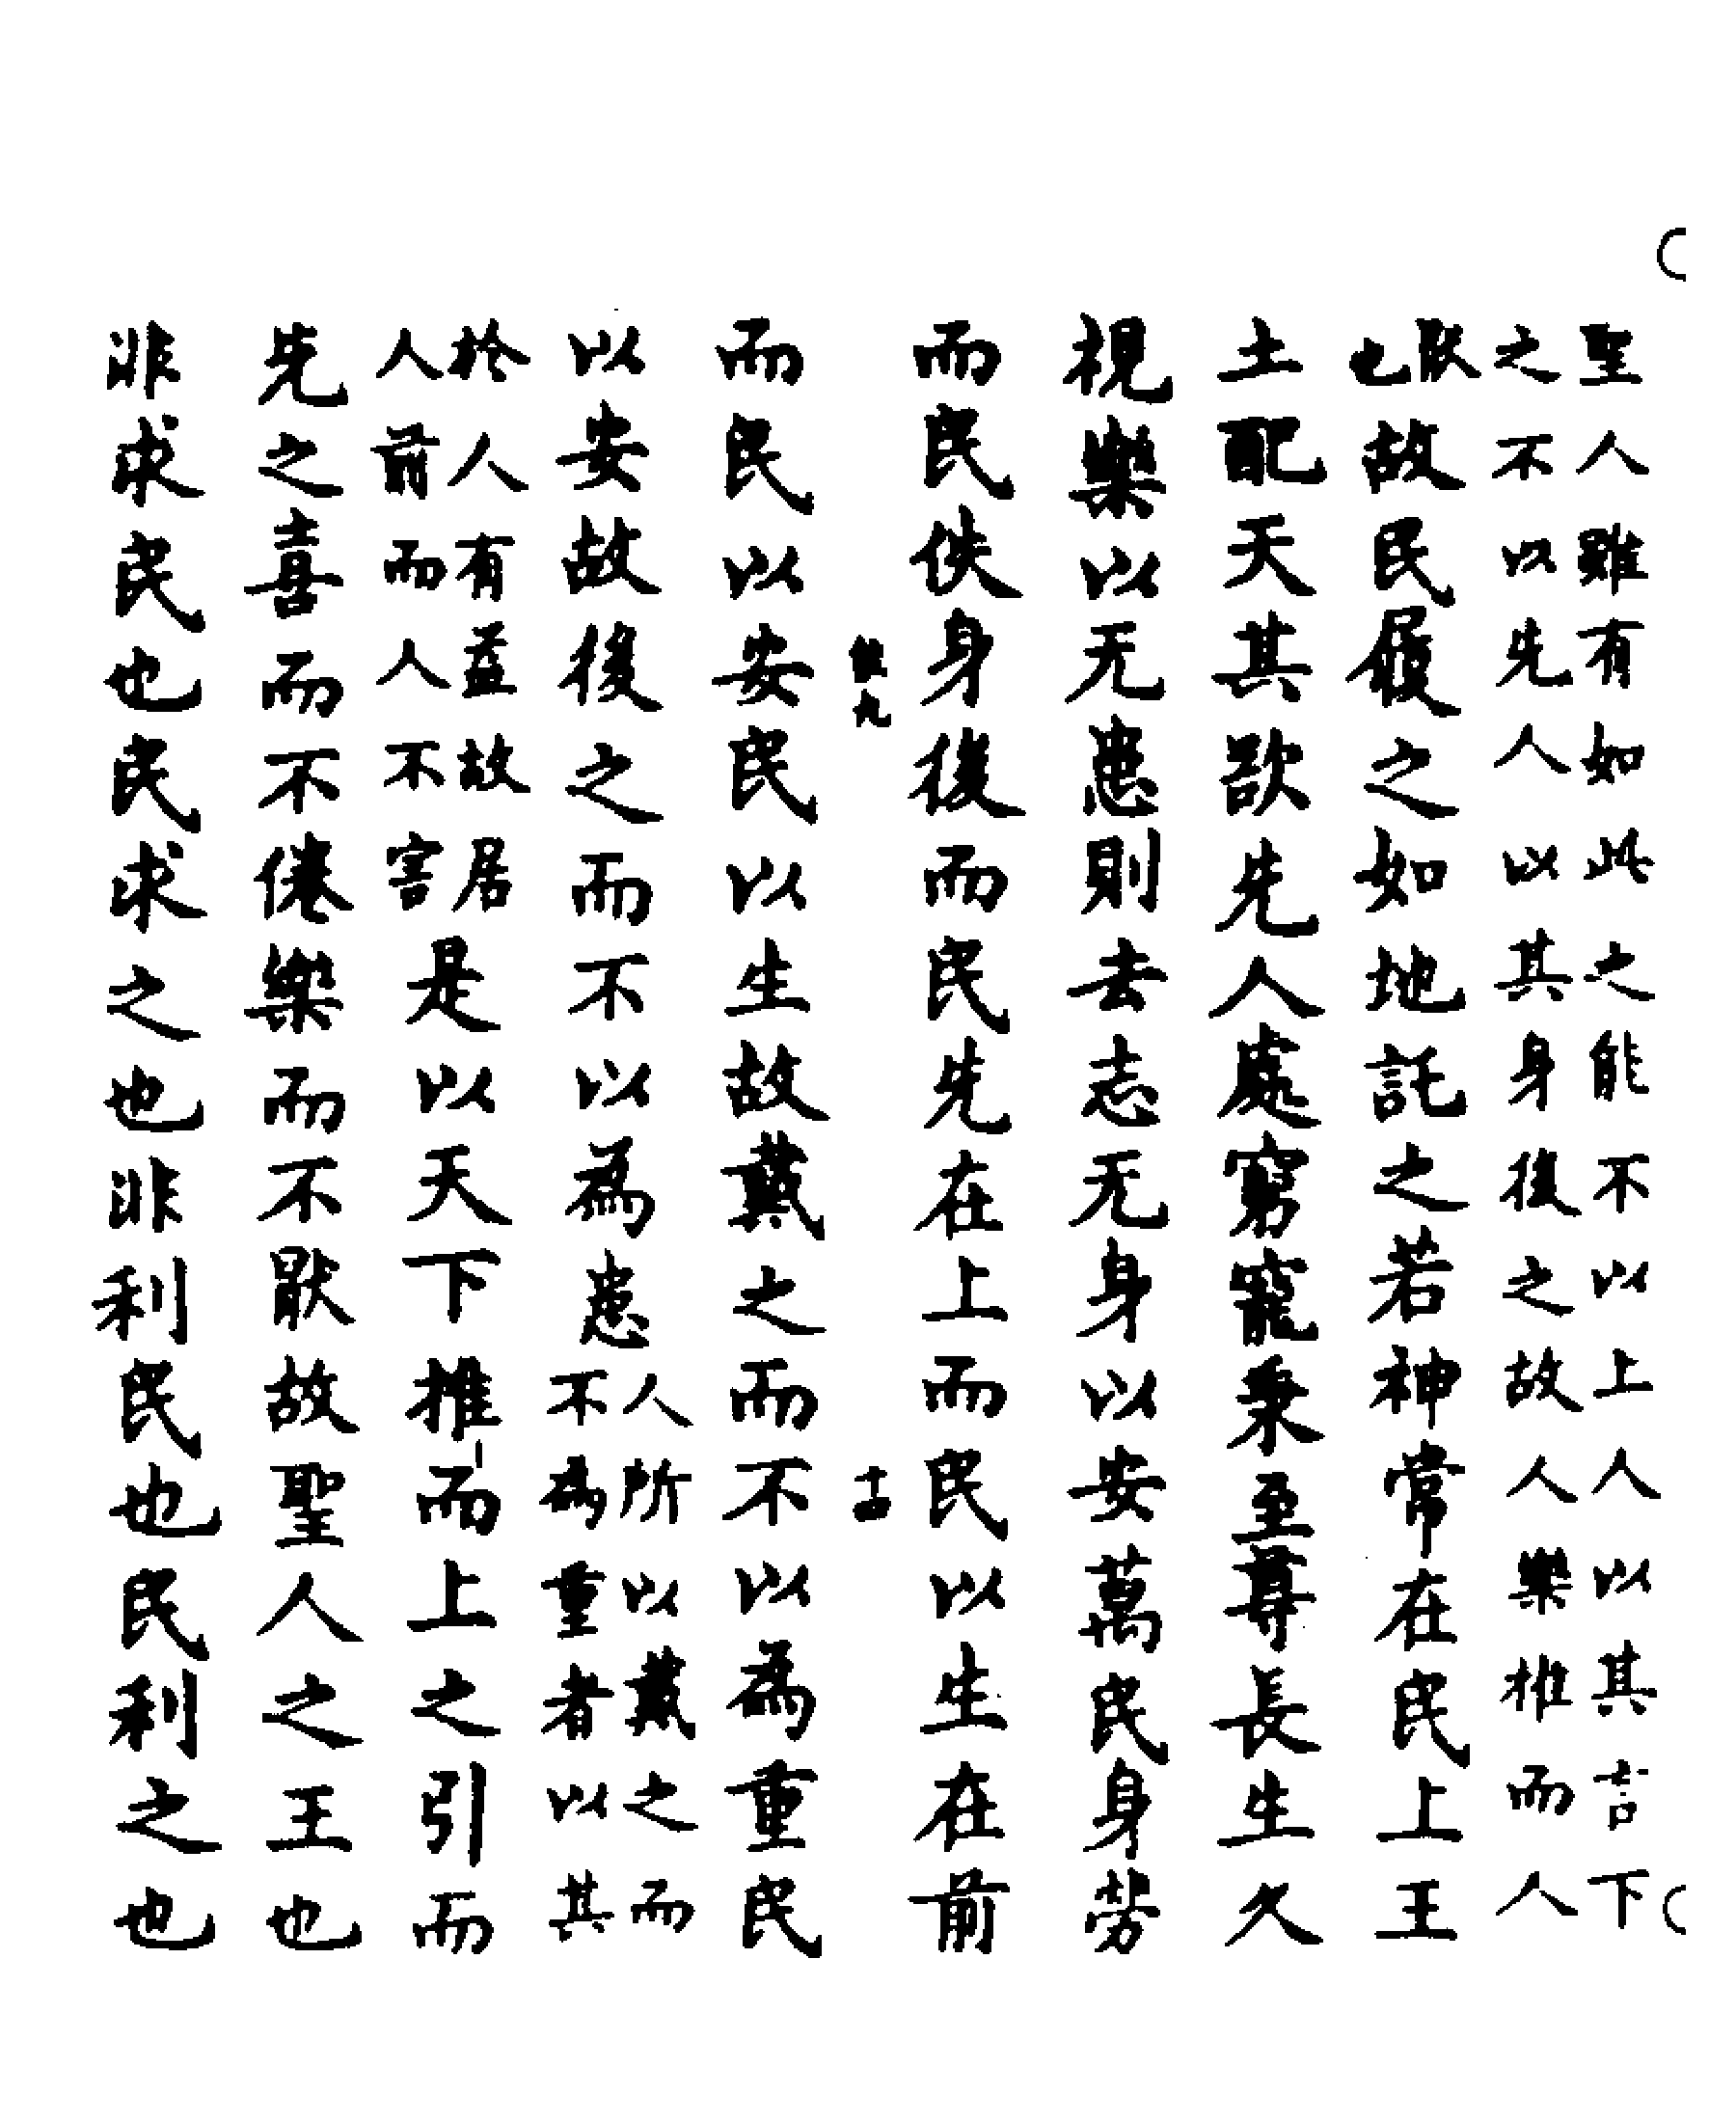 聖人雖有如此之能不以上人以其言下
之不以先人以其身後之故人樂推而人
猒
也
故民履之如地託之若神常在民上王
土配天其欲先人處窮寵秉至尊長生久
視樂以无患則去志无身以安萬民身勞
而民佚身後而民先在上而民以生在前
九 十四
而民以安民以生故戴之而不以為重民
以安故後之而不以為患
人所以戴之而
不為重者以其
於人有益故居
人前而人不害
是以天下推而上之引而
先之喜而不倦樂而不猒故聖人之王也
非求民也民求之也非利民也民利之也